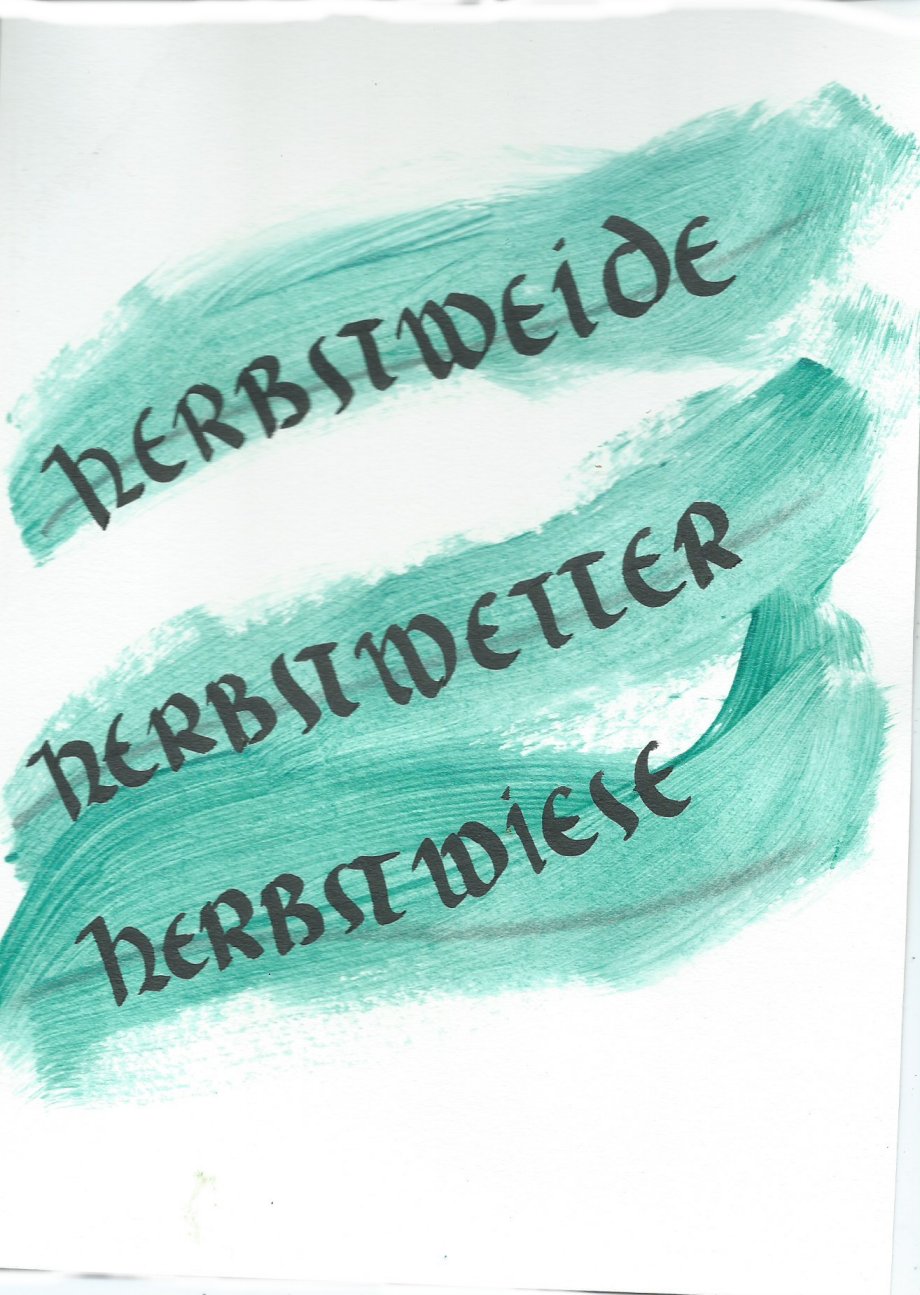 HERBSTWEIDE
HERBSTWETTER
HERBSTWIESE